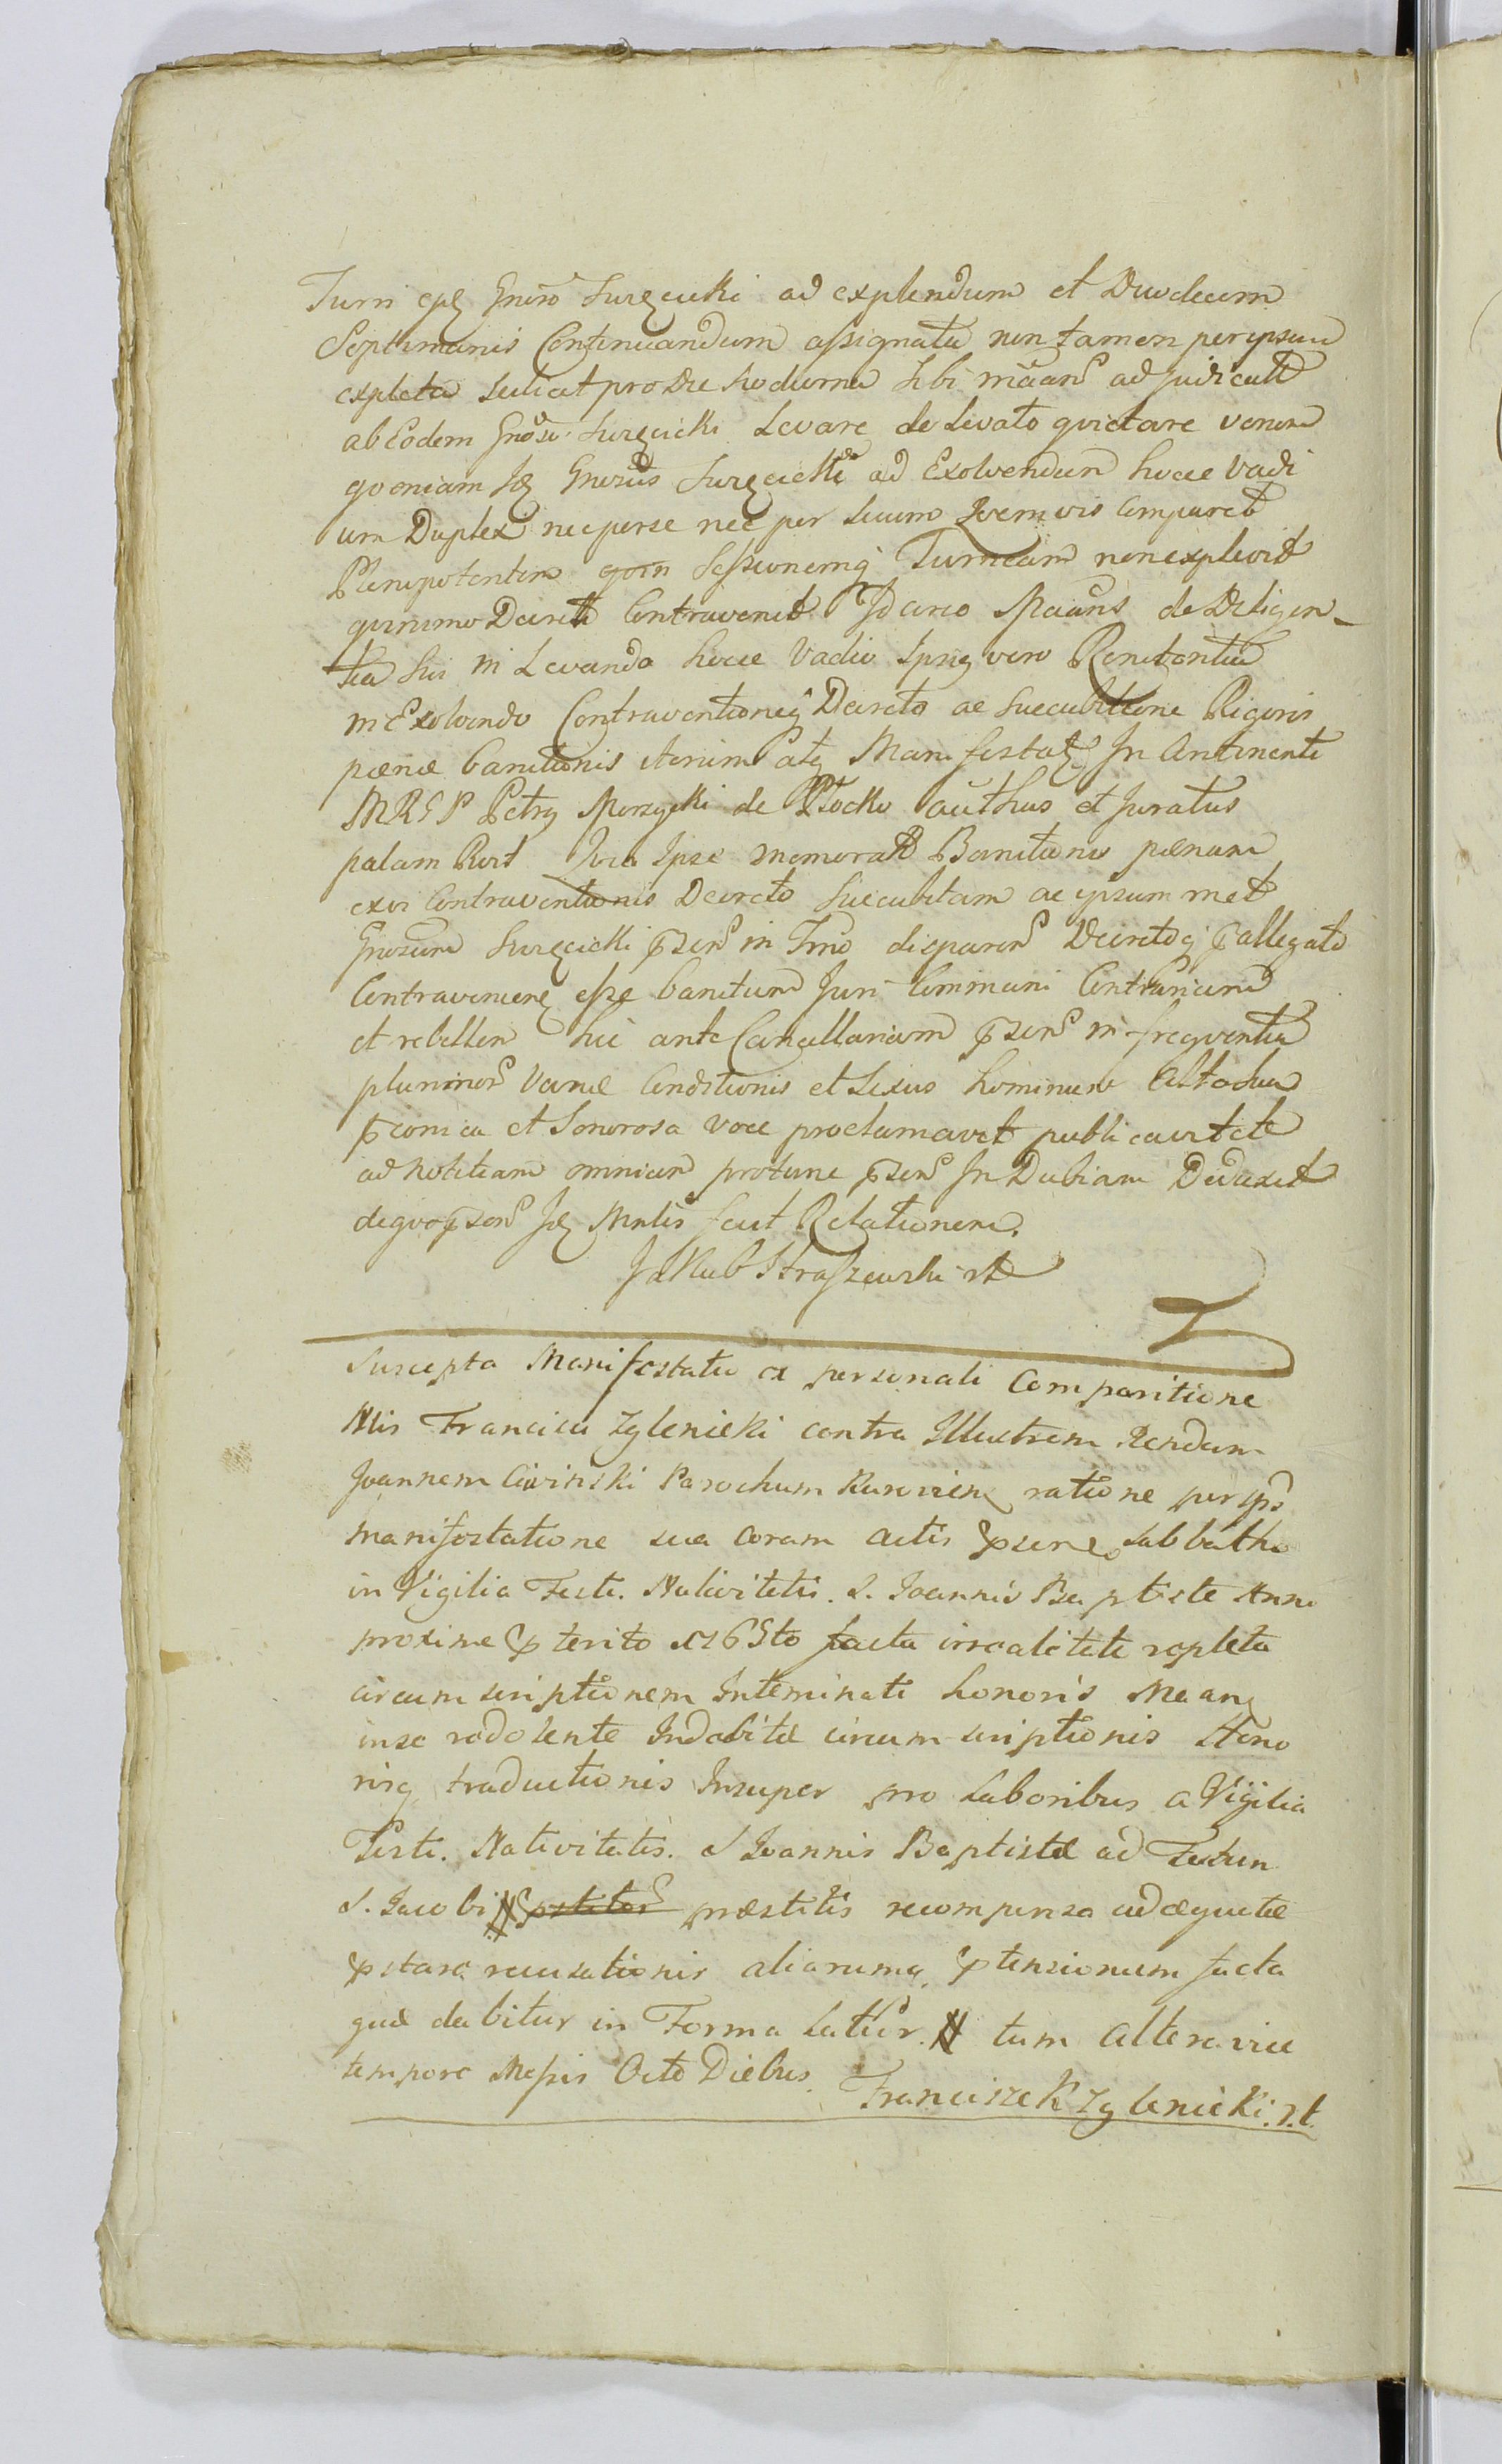 Turri ejq Gnroso Surzycki ad explendum et Duodecim
Septimanis Continuandum assignata non tamen per ipsum
expleta scilicet pro Die hodierna sibi mãanti adjudicatt
ab Eodem Gnoso Surzycki Levare de Levato quietare venera
qvoniam Iq Gnrosus Surzycki ad Exolvendum hocce Vadi
um Duplex nec per se nec per suum qvemvis Comparet
Plenipotentem sessionemq Turrieam non explevit
qvinimo Decreti Contravenit Idcirco Maans de Diligen-
tia sui in Levando hocce Vadio Ipsiq vero Renitentia
in Exolvendo Contraventioneq Decreto ac succubitione Rigoris
pænæ banitionis iterum atq Manifestatq In Continenti
MRGP Petrq Morzycki de Plocko authus et Juratus
palam Rort Qvia Ipse memorat Banitionis pænam
exvi Contraventionis Decreto succubitam ac ipsum met
Gnrosum Surzycki pzen in Tmo disparen Decretoq pallegato
Contravenienq esse banitum Juri Communi Contrarium
et rebellem hic ante Cancellariam pzen in freqventia
plurimor variæ Conditionis et Sexus hominum Alta sua
pconica et Sonorosa voce proclamavit publicavit et
ad Notitiam omnium protunc pzen In Dubiam Deduxit
de qvo pzen Iq Mntlis fecit Relationem.
Jakub Straszewski rt
Suscepta Manifestatio ex personali Comparitione
Nlis Francisci Zglenicki contra Illustrem Rendum
Joannem Ciwinski Parochum ratione per ips
manifestatione sua coram actis psen Sabbatho
in Vigilia Festi. Nativitatis. S. Joannis Baptiste Anno
proxime pterito 1765to facta irrealitate repleta
circumscriptionem Inteminati honoris Maan
in se redolente Indebitæ circumscriptionis Hono
risq traductionis Insuper pro Laboribus a Vigilia
Festi. Nativitatis. S Joannis Baptistæ ad Festum
S. Jacobi præstitis recompensa adæquatæ
pstare recusationis aliarumq ptensionum facta
quæ dabitur in Forma Latior. # tum altera vice
tempore Messis Octo Diebus. Franciszek Zglenicki. r.t.